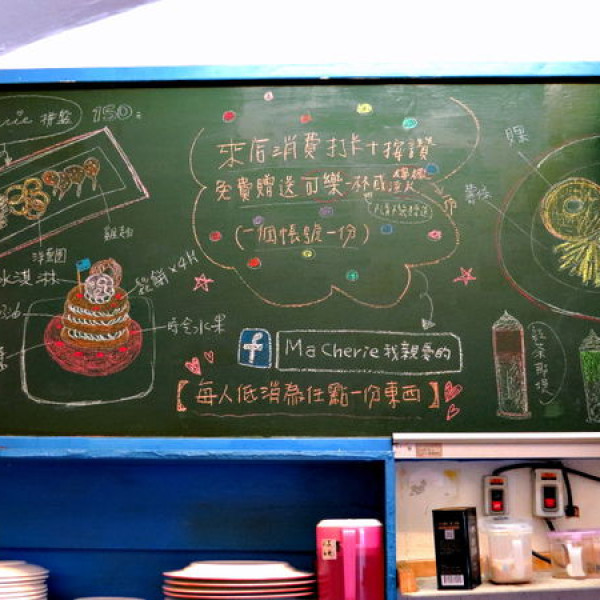 拼盤 150元
來店消費打卡+按讚
免費贈送可樂一杯或
(一個帳號一份)
洋蔥圈
雞柚
冰淇淋
鬆餅×4片
時令水果
f
Ma Cherie 我親愛的
【每人低消為任點一份東西】
薯條
紅茶那堤